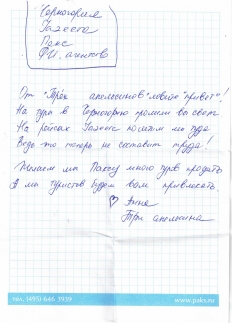 Черногория
Газета
Пакс
агентство
От "Трёх апельсинов" "привет"!
На туры в Черногорию прольем мы свет
На рейсах летим мы туда
Ведь это теперь не составит труда!
Желаем мы Паксу много туров продать
А мы туристов будем вам привлекать
♡ Анна
Три апельсина
тел. (495) 644 3939
www.paks.ru